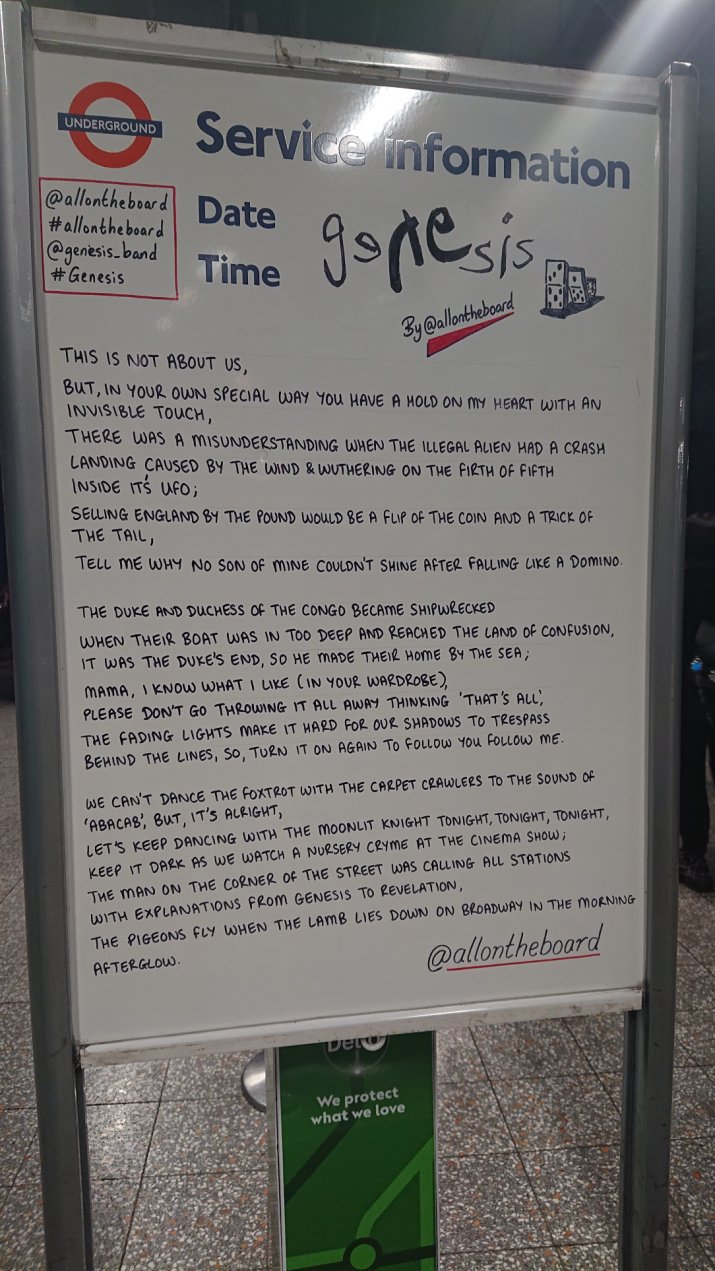 UNDERGROUND
Service information
@allontheboard
#allontheboard
@genesis_band
#Genesis
Date
Time
genesis
By @allontheboard
THIS IS NOT ABOUT US,
BUT, IN YOUR OWN SPECIAL WAY YOU HAVE A HOLD ON MY HEART WITH AN
INVISIBLE TOUCH,
THERE WAS A MISUNDERSTANDING WHEN THE ILLEGAL ALIEN HAD A CRASH
LANDING CAUSED BY THE WIND & WUTHERING ON THE FIRTH OF FIFTH
INSIDE IT'S UFO;
SELLING ENGLAND BY THE POUND WOULD BE A FLIP OF THE COIN AND A TRICK OF
THE TAIL,
TELL ME WHY NO SON OF MINE COULDN'T SHINE AFTER FALLING LIKE A DOMINO.
THE DUKE AND DUCHESS OF THE CONGO BECAME SHIPWRECKED
WHEN THEIR BOAT WAS IN TOO DEEP AND REACHED THE LAND OF CONFUSION,
IT WAS THE DUKE'S END, SO HE MADE THEIR HOME BY THE SEA;
MAMA, I KNOW WHAT I LIKE (IN YOUR WARDROBE),
PLEASE DON'T GO THROWING IT ALL AWAY THINKING 'THAT'S ALL',
THE FADING LIGHTS MAKE IT HARD FOR OUR SHADOWS TO TRESPASS
BEHIND THE LINES, SO, TURN IT ON AGAIN TO FOLLOW YOU FOLLOW ME.
WE CAN'T DANCE THE FOXTROT WITH THE CARPET CRAWLERS TO THE SOUND OF
'ABACAB', BUT, IT'S ALRIGHT,
LET'S KEEP DANCING WITH THE MOONLIT KNIGHT TONIGHT, TONIGHT, TONIGHT,
KEEP IT DARK AS WE WATCH A NURSERY CRYME AT THE CINEMA SHOW;
THE MAN ON THE CORNER OF THE STREET WAS CALLING ALL STATIONS
WITH EXPLANATIONS FROM GENESIS TO REVELATION,
THE PIGEONS FLY WHEN THE LAMB LIES DOWN ON BROADWAY IN THE MORNING
AFTERGLOW.
@allontheboard
We protect
what we love